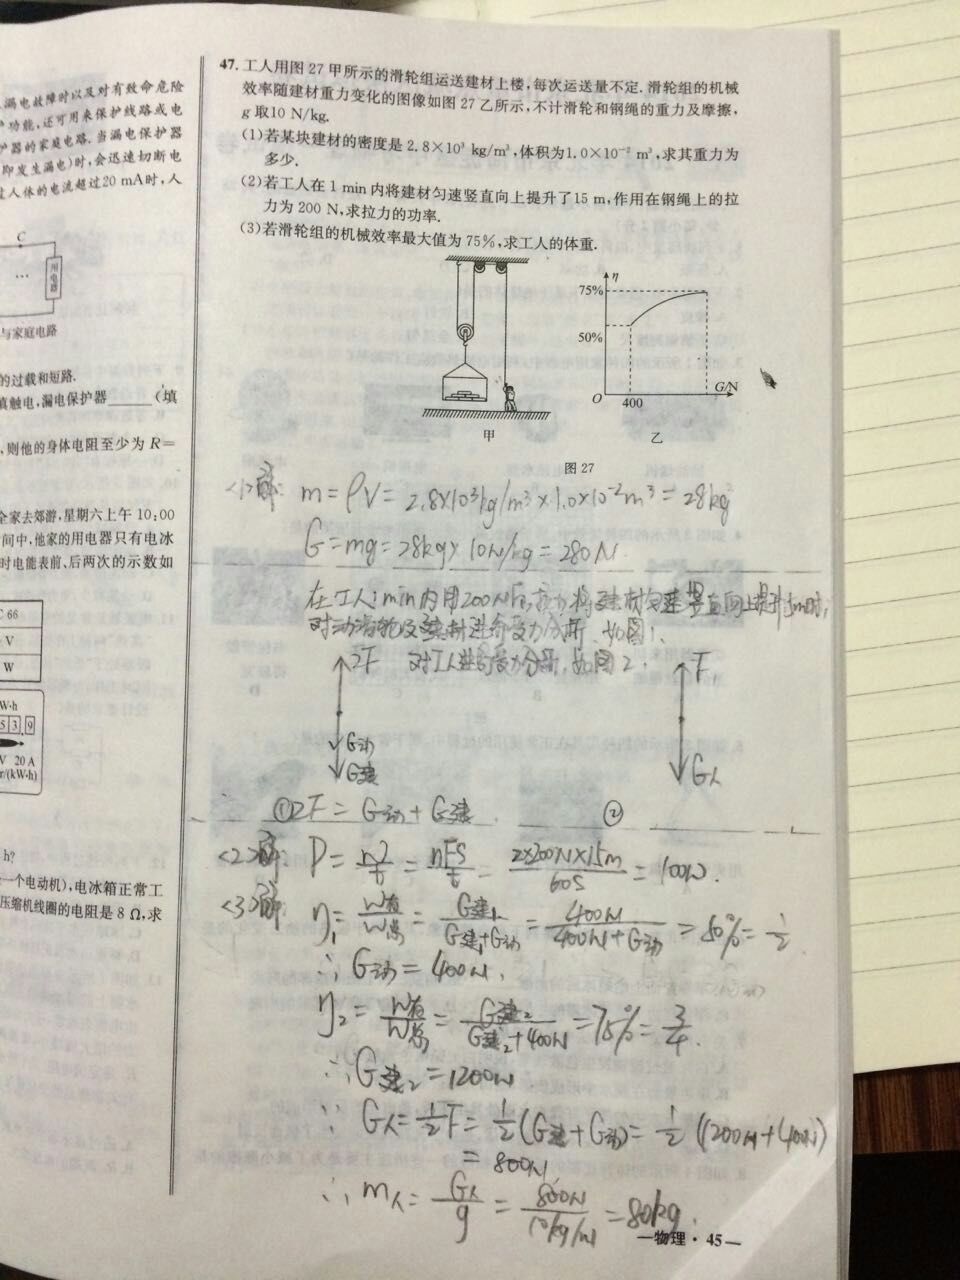 漏电故障时以及对有致命危险
功能,还可用来保护线路或电
护器的家庭电路.当漏电保护器
即发生漏电)时,会迅速切断电
过人体的电流超过20 mA时,人
C
…
用电器
与家庭电路
的过载和短路.
真触电,漏电保护器____(填
、则他的身体电阻至少为 R=
全家去郊游,星期六上午 10:00
间中,他家的用电器只有电冰
时电能表前、后两次的示数如
C 66
V
W
W·h
5 3 9
V 20 A
r/(kW·h)
h?
一个电动机),电冰箱正常工
压缩机线圈的电阻是 8 Ω,求
47. 工人用图 27 甲所示的滑轮组运送建材上楼,每次运送量不定.滑轮组的机械
效率随建材重力变化的图像如图 27 乙所示,不计滑轮和钢绳的重力及摩擦,
g 取10 N/kg.
(1)若某块建材的密度是 2.8×10³ kg/m³,体积为1.0×10⁻² m³,求其重力为
多少.
(2)若工人在 1 min内将建材匀速竖直向上提升了15 m,作用在钢绳上的拉
力为 200 N,求拉力的功率.
(3)若滑轮组的机械效率最大值为 75%,求工人的体重.
甲
η
75%
50%
O
400
G/N
乙
图 27
<1>解: m=ρV=2.8×10³kg/m³×1.0×10⁻²m³=28kg
G=mg=28kg×10N/kg=280N.
在工人1min内用200N的拉力将建材匀速竖直向上提升15m时,
对动滑轮及建材进行受力分析,如图1.
对工人进行受力分析,如图2.
2F
G动
G建
F
G人
①2F=G动+G建
②
<2>解: P=W/t=nFs/t=2×200N×15m/60s=100W.
<3>解: η₁=W有/W总=G建₁/G建₁+G动=400N/400N+G动=50%=1/2
∴G动=400N.
η₂=W有/W总=G建₂/G建₂+400N=75%=3/4.
∴G建₂=1200N
∵G人=1/2F=1/2(G建+G动)=1/2(1200N+400N)
=800N
∴m人=G人/g=800N/10kg/N=80kg.
—物理·45—